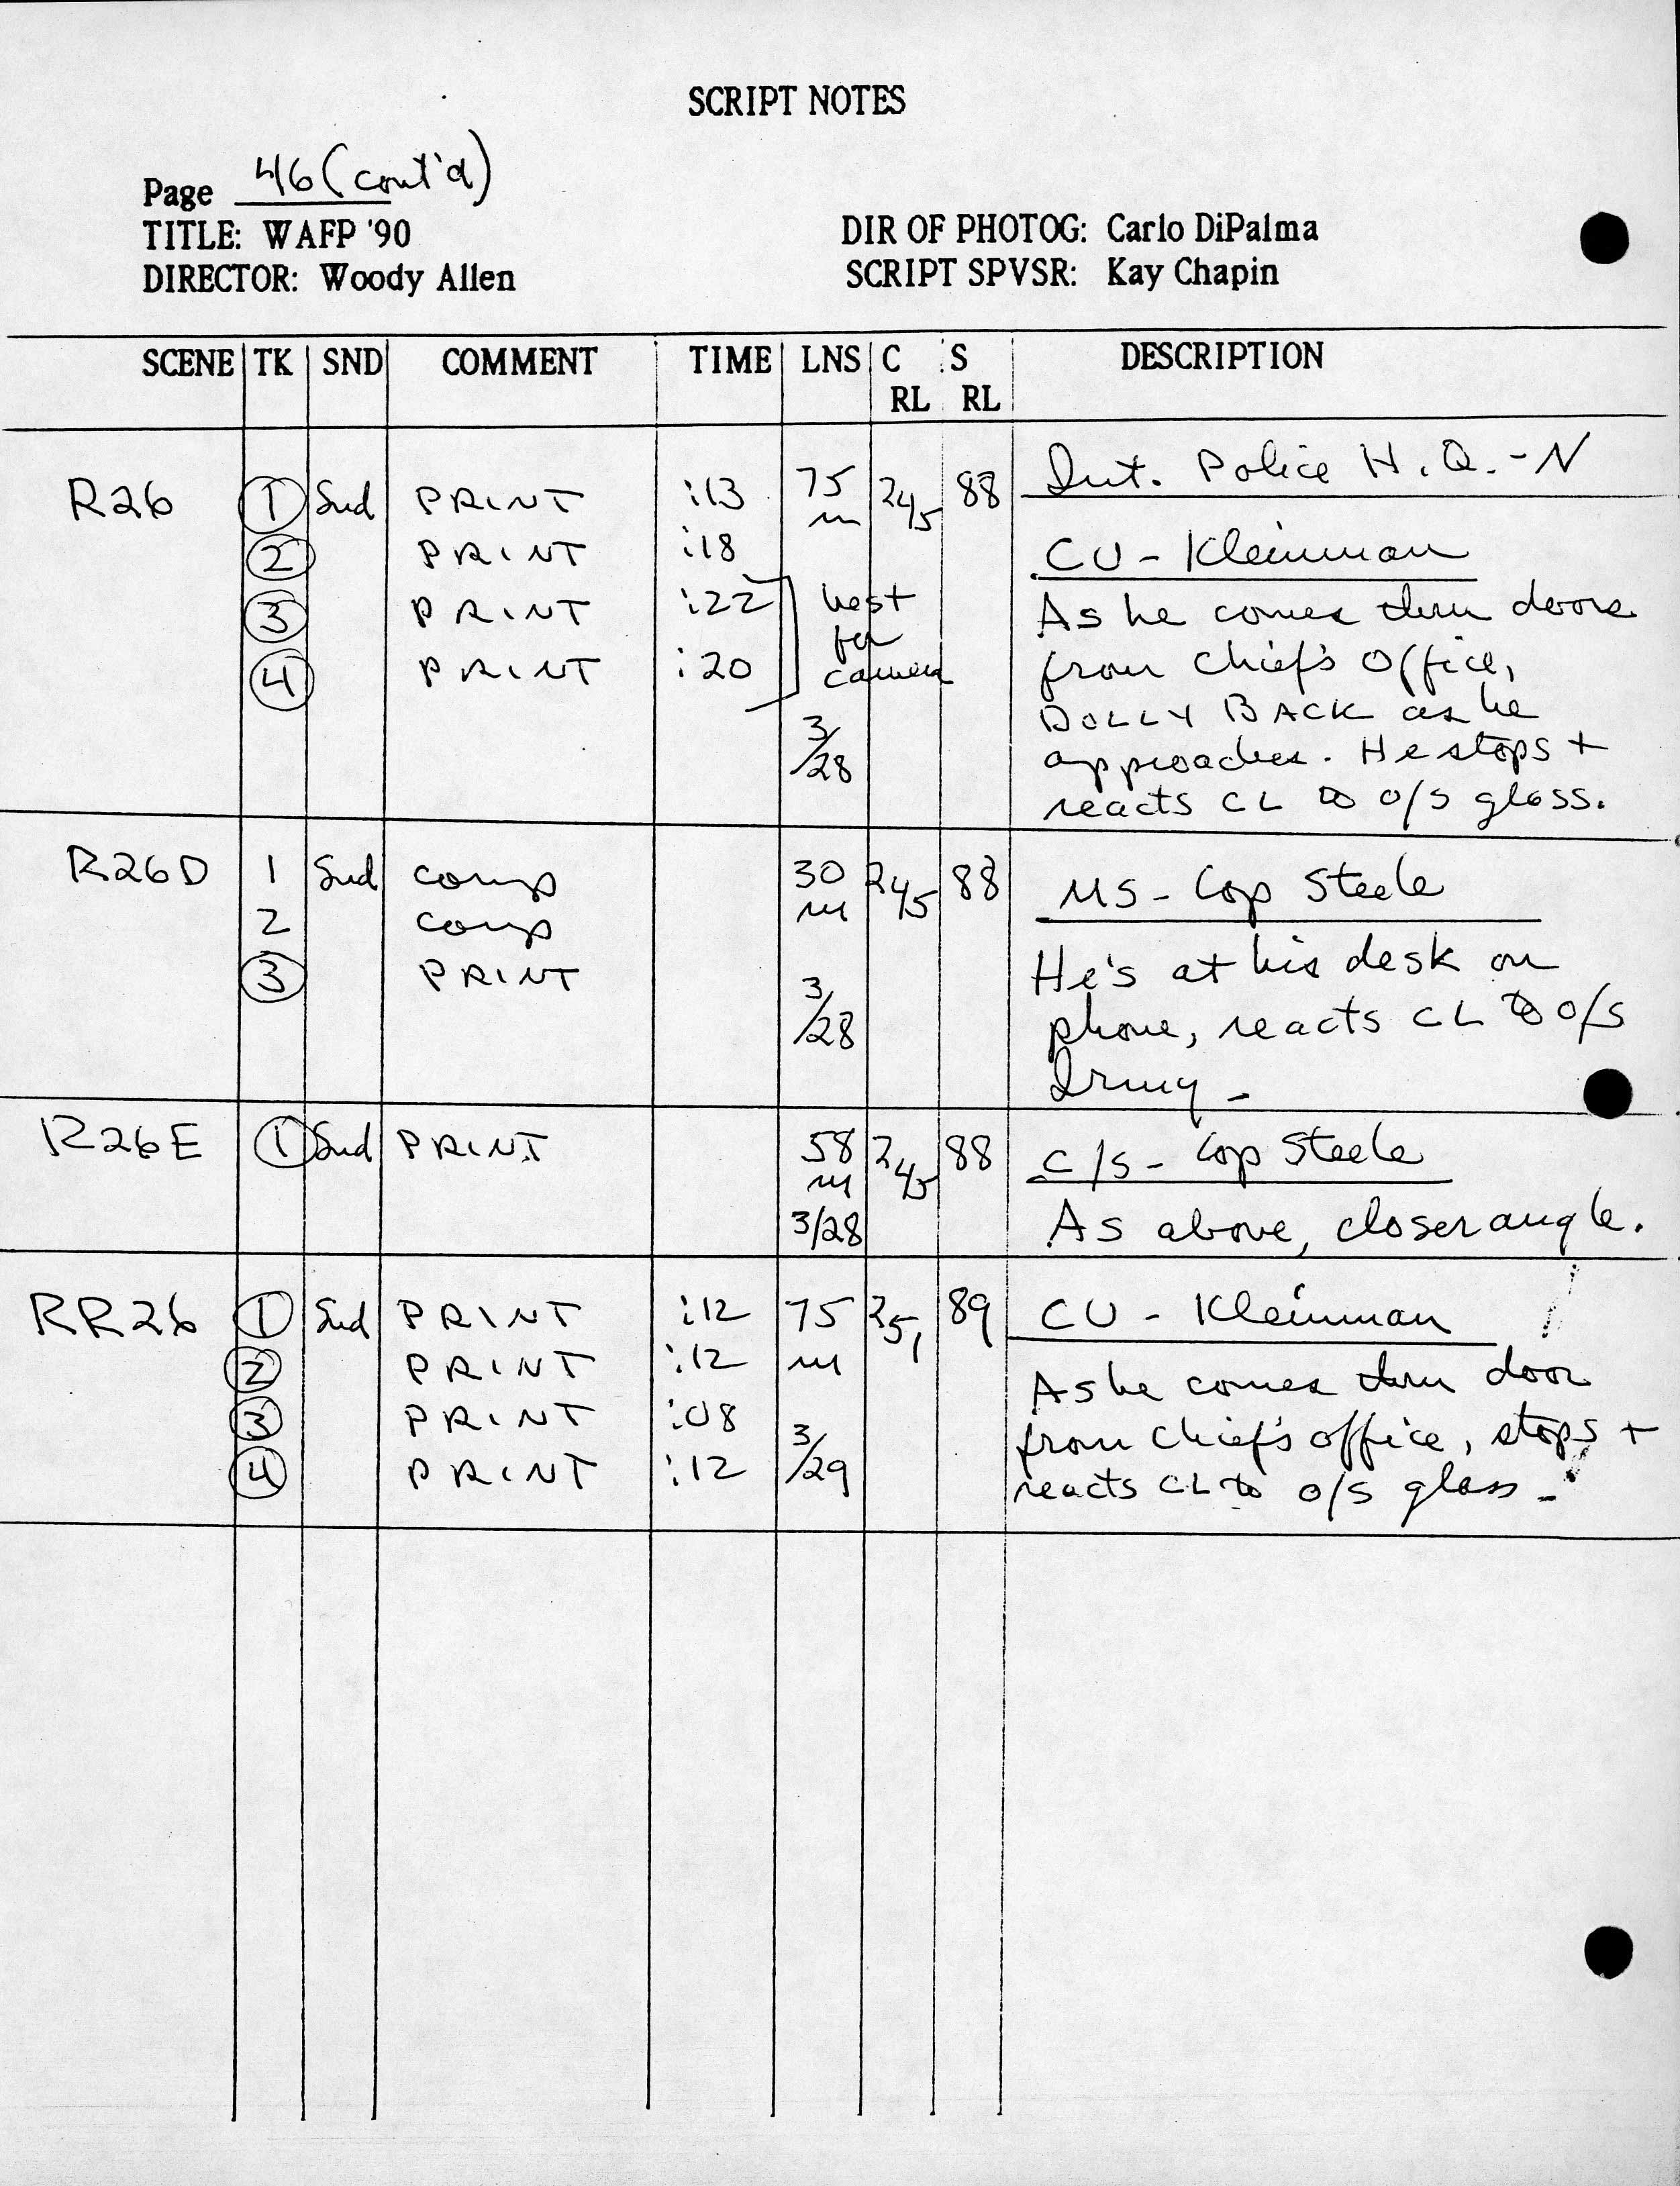 SCRIPT NOTES
Page 46 (cont'd)
TITLE: WAFP '90
DIRECTOR: Woody Allen
DIR OF PHOTOG: Carlo DiPalma
SCRIPT SPVSR: Kay Chapin
SCENE TK SND COMMENT TIME LNS C RL S RL DESCRIPTION
R26 1 Snd PRINT :13 75 m 245 88 Int. Police H.Q. - N
2 PRINT :18 CU - Kleinman
3 PRINT :22 best As he comes thru doors
for
4 PRINT :20 camera from Chief's Office,
DOLLY BACK as he
3/28 approaches. He stops +
reacts CL to o/s glass.
R26D 1 Snd comp 30 m 245 88 MS - Cop Steele
2 comp
3 PRINT He's at his desk on
3/28 phone, reacts CL to o/s
Irmy -
R26E 1 Snd PRINT 58 m 245 88 C/S - Cop Steele
3/28 As above, closer angle.
RR26 1 Snd PRINT :12 75 m 251 89 CU - Kleinman
2 PRINT :12 As he comes thru door
3 PRINT :08 from Chief's office, stops +
4 PRINT :12 3/29 reacts CL to o/s glass -